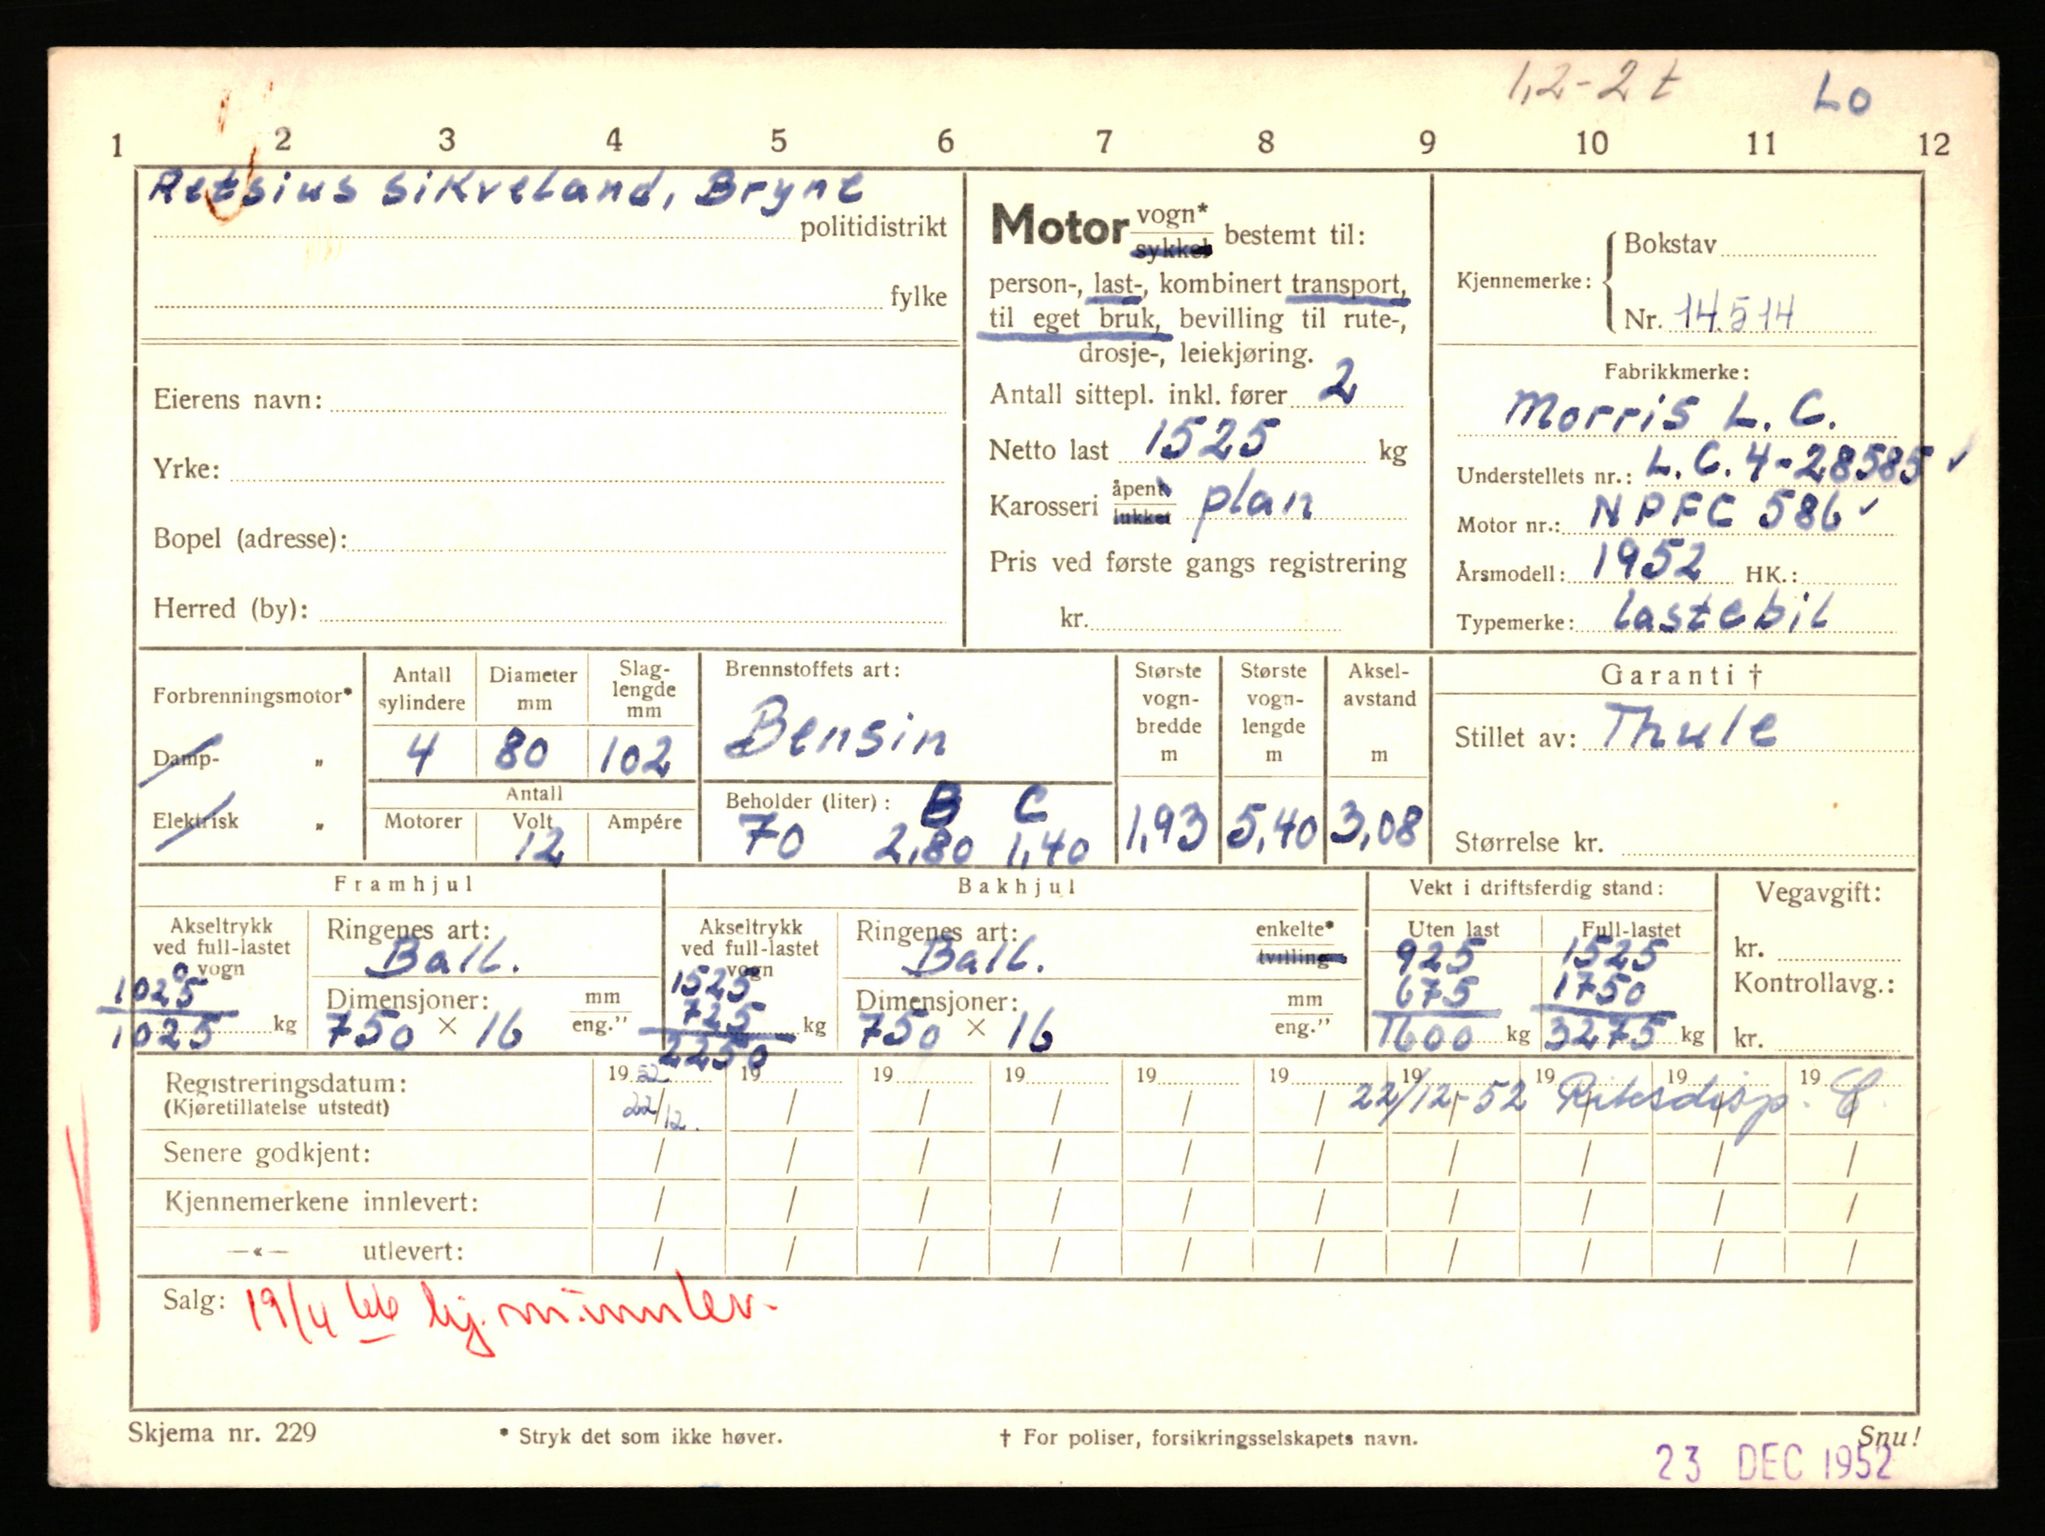 1,2-2 t Lo
1 2 3 4 5 6 7 8 9 10 11 12
Retsius Sikveland, Bryne
politidistrikt
fylke
Eierens navn:
Yrke:
Bopel (adresse):
Herred (by):
Motor vogn* sykkel bestemt til:
person-, last-, kombinert transport,
til eget bruk, bevilling til rute-,
drosje-, leiekjøring.
Antall sittepl. inkl. fører 2
Netto last 1525 kg
Karosseri åpent lukket plan
Pris ved første gangs registrering
kr.
Kjennemerke: Bokstav
Nr. 14514
Fabrikkmerke:
Morris L. C.
Understellets nr.: L.C.4-28585 ✓
Motor nr.: NPFC 586 ✓
Årsmodell: 1952 HK.:
Typemerke: Lastebil
Forbrenningsmotor*
Damp- „
Elektrisk „
Antall sylindere
4
Diameter mm
80
Slag-lengde mm
102
Antall
Motorer Volt Ampére
12
Brennstoffets art:
Bensin
Beholder (liter): B C
70 2,80 1,40
Største vogn-bredde m
1,93
Største vogn-lengde m
5,40
Aksel-avstand m
3,08
Garanti †
Stillet av: Thule
Størrelse kr.
Framhjul
Akseltrykk ved full-lastet vogn
0
1025
1025 kg
Ringenes art:
Ball.
Dimensjoner: mm eng.”
750 × 16
Bakhjul
Akseltrykk ved full-lastet vogn
1525
725
2250 kg
Ringenes art: enkelte* tvilling
Ball.
Dimensjoner: mm eng.”
750 × 16
Vekt i driftsferdig stand:
Uten last Full-lastet
925 1525
675 1750
1600 kg 3275 kg
Vegavgift:
kr.
Kontrollavg.:
kr.
Registreringsdatum: 19 52 19 19 19 19 19 19 19 19 19
(Kjøretillatelse utstedt) 22/12. 22/12-52 Riksdisp.
Senere godkjent:
Kjennemerkene innlevert:
—«— utlevert:
Salg: 19/4 66 kj.m. innlev.
Skjema nr. 229 * Stryk det som ikke høver. † For poliser, forsikringsselskapets navn. Snu!
23 DEC 1952